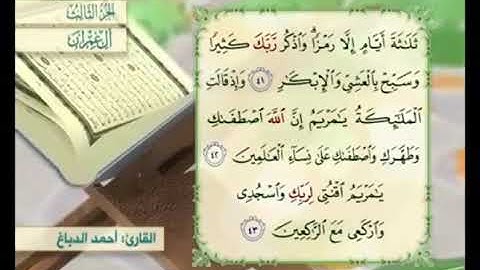 الجزء الثالث
آل عمران
ثَلَٰثَةَ أَيَّامٍ إِلَّا رَمْزًا ۗ وَٱذْكُر رَّبَّكَ كَثِيرًا
وَسَبِّحْ بِٱلْعَشِىِّ وَٱلْإِبْكَٰرِ ٤١ وَإِذْ قَالَتِ
ٱلْمَلَٰٓئِكَةُ يَٰمَرْيَمُ إِنَّ ٱللَّهَ ٱصْطَفَىٰكِ
وَطَهَّرَكِ وَٱصْطَفَىٰكِ عَلَىٰ نِسَآءِ ٱلْعَٰلَمِينَ ٤٢
يَٰمَرْيَمُ ٱقْنُتِى لِرَبِّكِ وَٱسْجُدِى
وَٱرْكَعِى مَعَ ٱلرَّٰكِعِينَ ٤٣
القارئ: أحمد الدباغ